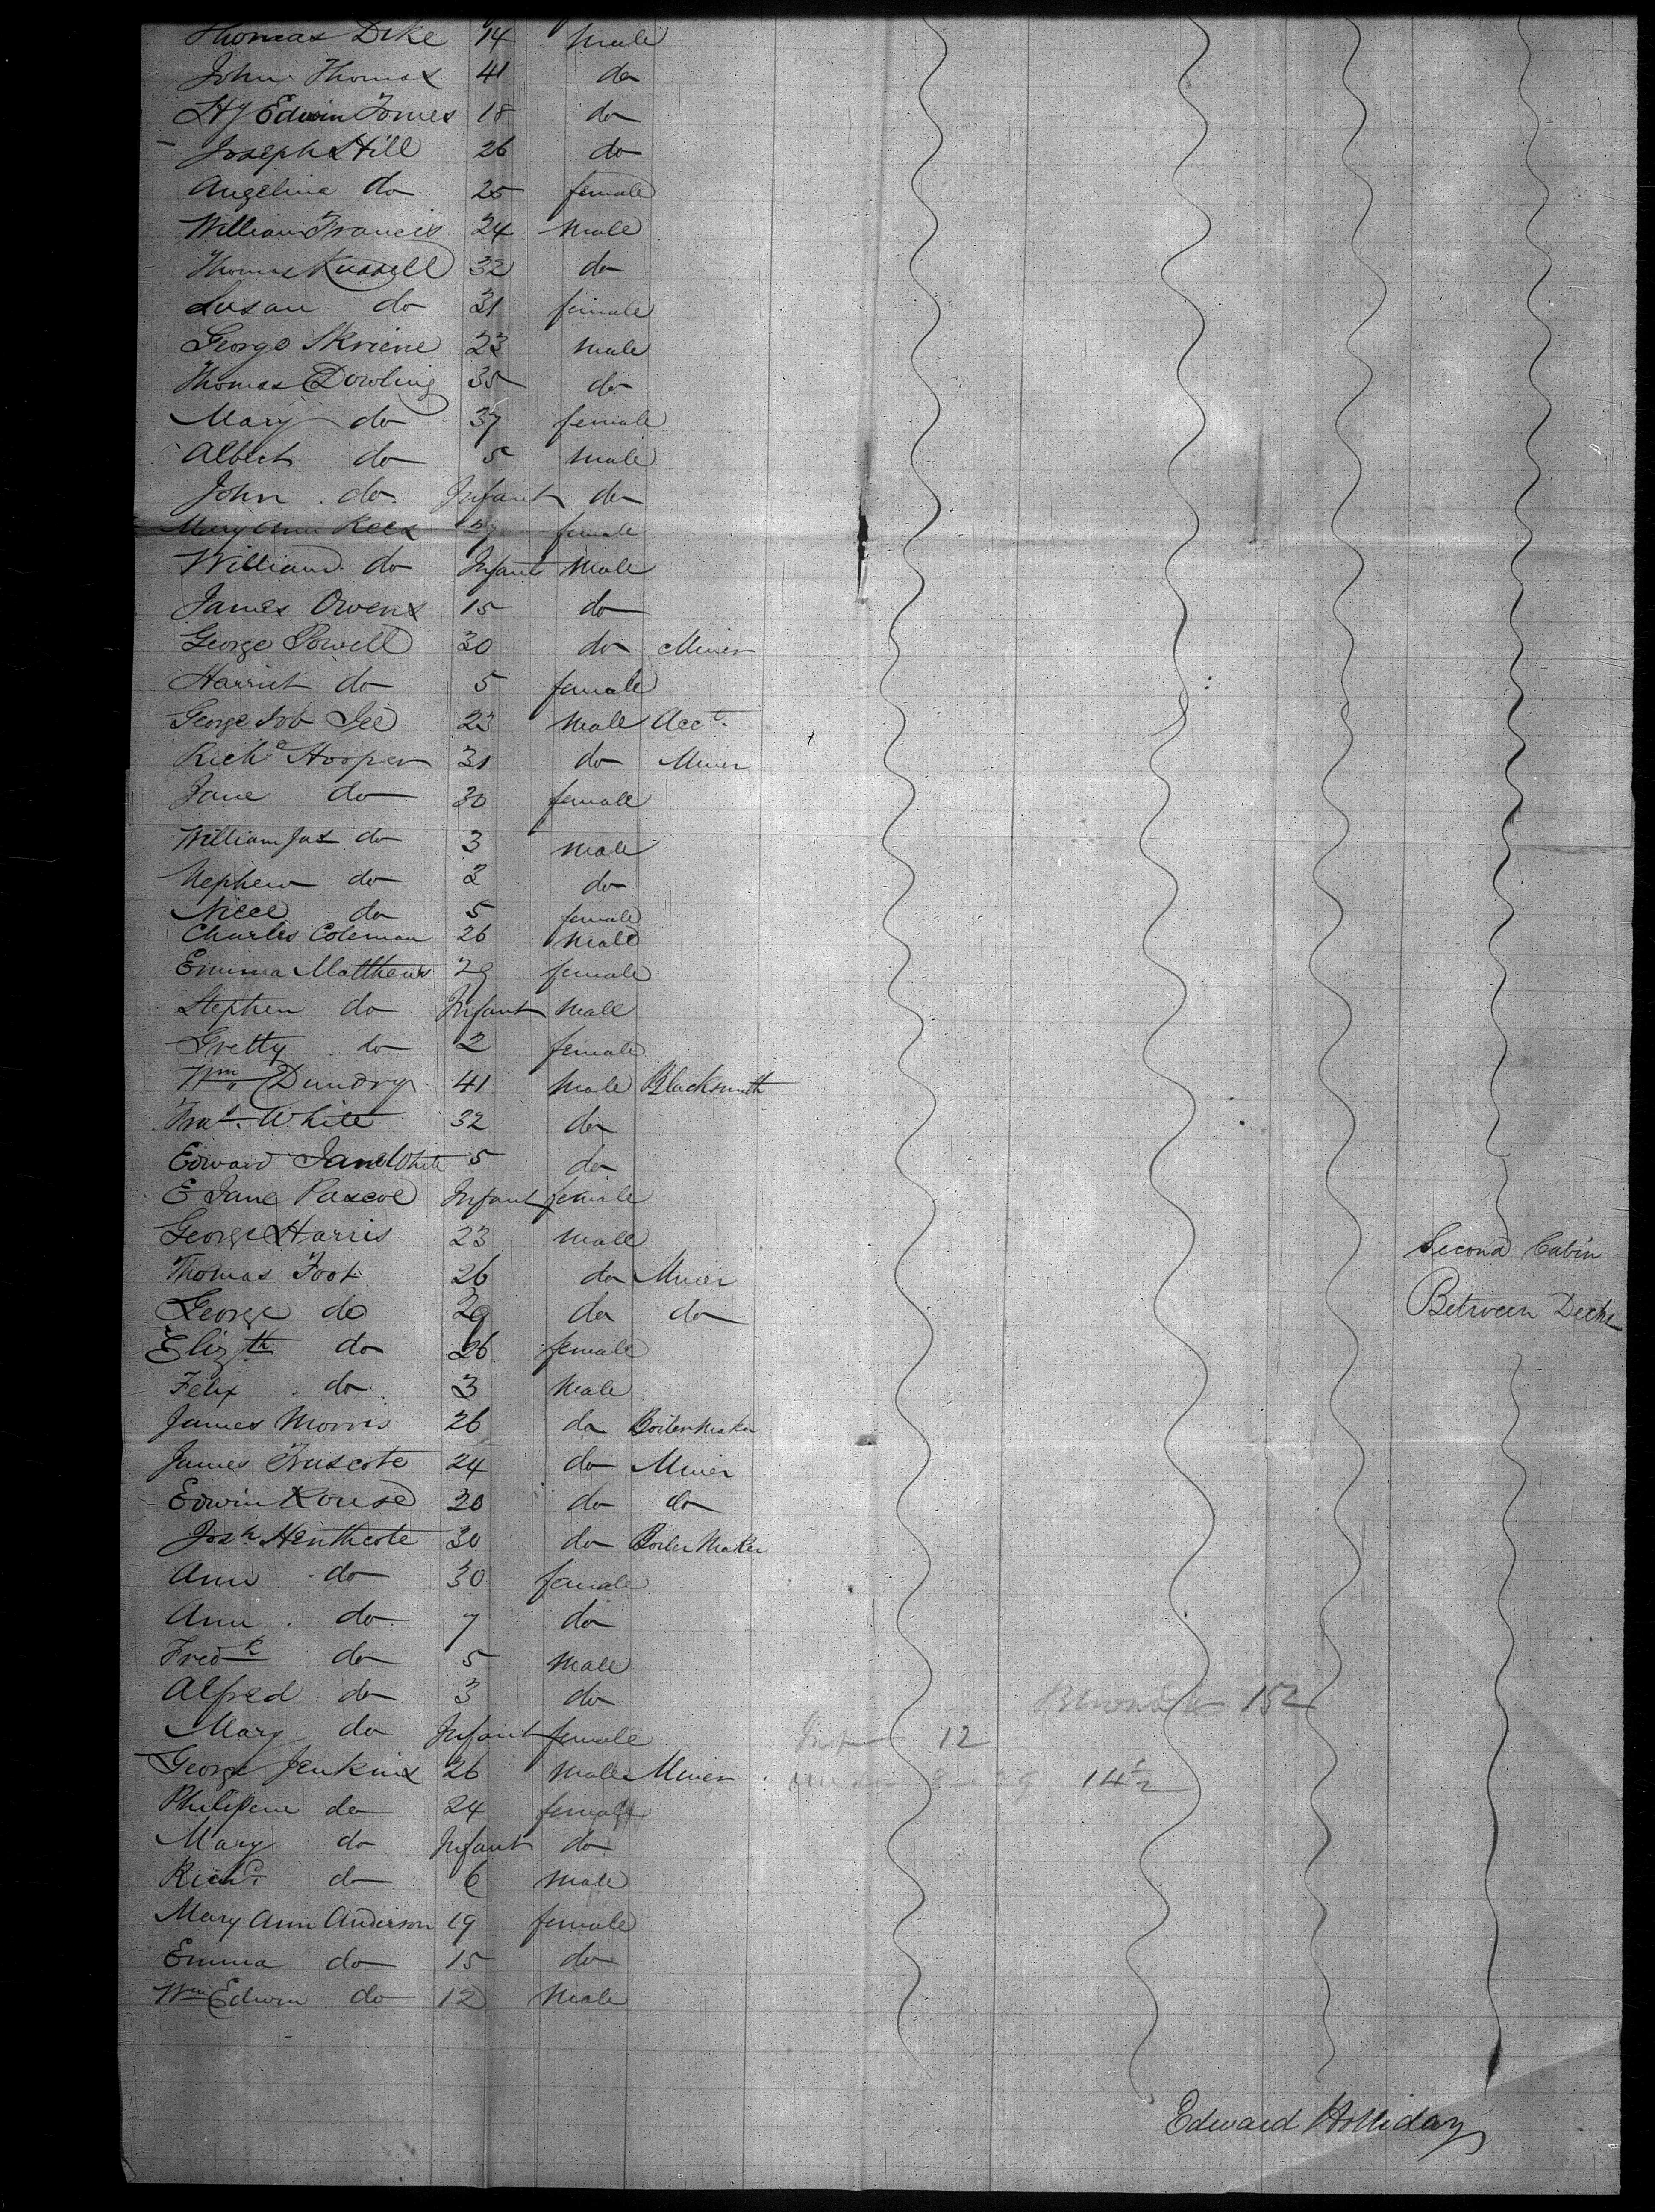 Thomas Dike 14 male
John Thomas 41 do
Hy Edwin Tomes 18 do
Joseph Hill 26 do
Angelina do 25 female
William Francis 24 male
Thomas Russell 32 do
Susan do 31 female
George Skriene 23 male
Thomas Dowling 35 do
Mary do 37 female
Albert do 5 male
John do Infant do
Mary Ann Rees 27 female
William do Infant Male
James Owens 15 do
George Powell 30 do Miner
Harriet do 5 female
George Job Gee 23 Male Acct.
Richd Hooper 31 do Miner
Jane do 30 female
William Jas do 3 male
Nephew do 3 do
Niece do 5 female
Charles Coleman 26 Male
Emma Matthews 29 female
Stephen do Infant Male
Gretty do 2 female
Wm Dundry 41 Male Blacksmith
White 32 do
Edward Jane White 5 do
E Jane Pascoe Infant female
George Harris 23 Male
Second Cabin
Thomas Foot 26 do Miner
George do 29 do do
Between Decks
Elizth do 26 female
Felix do 3 Male
James Morris 26 do Boiler Maker
James Truscote 24 do Miner
Edwin Rouse 20 do do
Josh Henthcote 30 do Boiler Maker
Ann do 30 female
Ann do 7 do
Fredk do 5 Male
Alfred do 3 do
152
Mary do Infant female
12
George Jenkins 26 Male Miner
14½
Philipene do 24 female
Mary do Infant do
Richd do 6 Male
Mary Ann Anderson 19 female
Emma do 15 do
Wm Edwin do 12 Male
Edward Holliday